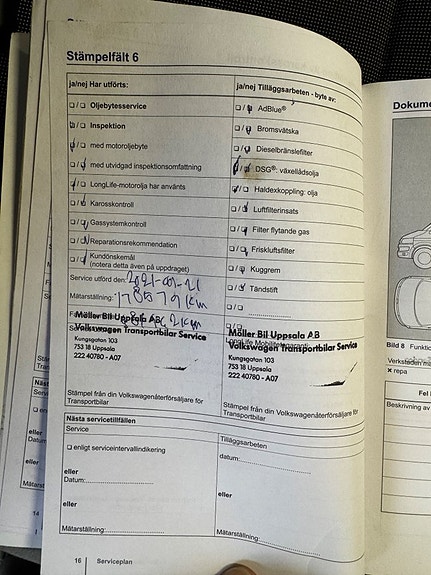 Stämpelfält 6
ja/nej Har utförts:
☐/☐ Oljebytesservice
☐/☐ Inspektion
☐/☐ med motoroljebyte
☐/☐ med utvidgad inspektionsomfattning
☐/☐ LongLife-motorolja har använts
☐/☐ Karosskontroll
☐/☐ Gassystemkontroll
☐/☐ Reparationsrekommendation
☐/☐ Kundönskemål
(notera detta även på uppdraget)
Service utförd den:
Mätarställning: km
Möller Bil Uppsala AB
Volkswagen Transportbilar Service
Kungsgatan 103
753 18 Uppsala
222 40780 - A07
Stämpel från din Volkswagenåterförsäljare för
Transportbilar
ja/nej Tilläggsarbeten - byte av:
☐/☐ AdBlue®
☐/☐ Bromsvätska
☐/☐ Dieselbränslefilter
☐/☐ DSG®: växellådsolja
☐/☐ Haldexkoppling: olja
☐/☐ Luftfilterinsats
☐/☐ Filter flytande gas
☐/☐ Friskluftsfilter
☐/☐ Kuggrem
☐/☐ Tändstift
☐/☐
☐/☐
Möller Bil Uppsala AB
Volkswagen Transportbilar Service
Kungsgatan 103
753 18 Uppsala
222 40780 - A07
Stämpel från din Volkswagenåterförsäljare för
Transportbilar
Nästa servicetillfällen
Service
☐ enligt serviceintervallindikering
eller
Datum:
eller
Mätarställning:
Tilläggsarbeten
datum:
eller
Mätarställning:
16 | Serviceplan
Bild 8
× repa
Beskrivning av